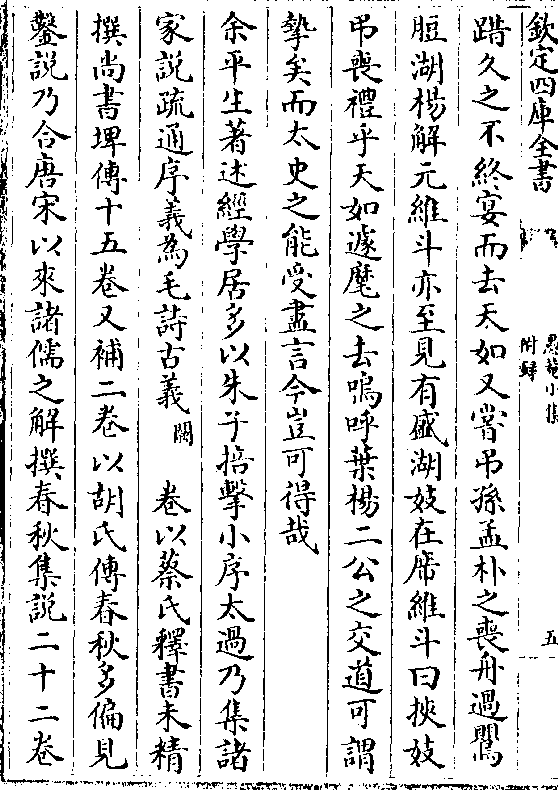 欽定四庫全書
愚菴小集
附録
五
踖久之不終宴而去天如又嘗弔孫孟朴之喪舟過鶯
脰湖楊解元維斗亦至見有盛湖妓在席維斗曰挾妓
弔喪禮乎天如遽麾之去嗚呼葉楊二公之交道可謂
摯矣而太史之能受盡言今豈可得哉
余平生著述經學居多以朱子掊擊小序太過乃集諸
家説疏通序義為毛詩古義闕卷以蔡氏釋書未精
撰尚書埤傳十五卷又補二卷以胡氏傳春秋多偏見
鑿説乃合唐宋以來諸儒之解撰春秋集説二十二卷